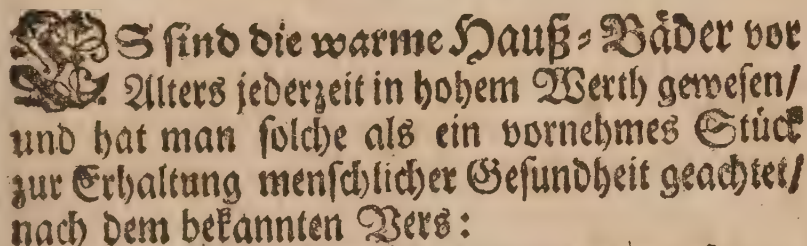 ES sind die warme Hauß-Bäder vor
Alters jederzeit in hohem Werth gewesen/
und hat man solche als ein vornehmes Stück
zur Erhaltung menschlicher Gesundheit geachtet/
nach dem bekannten Vers: